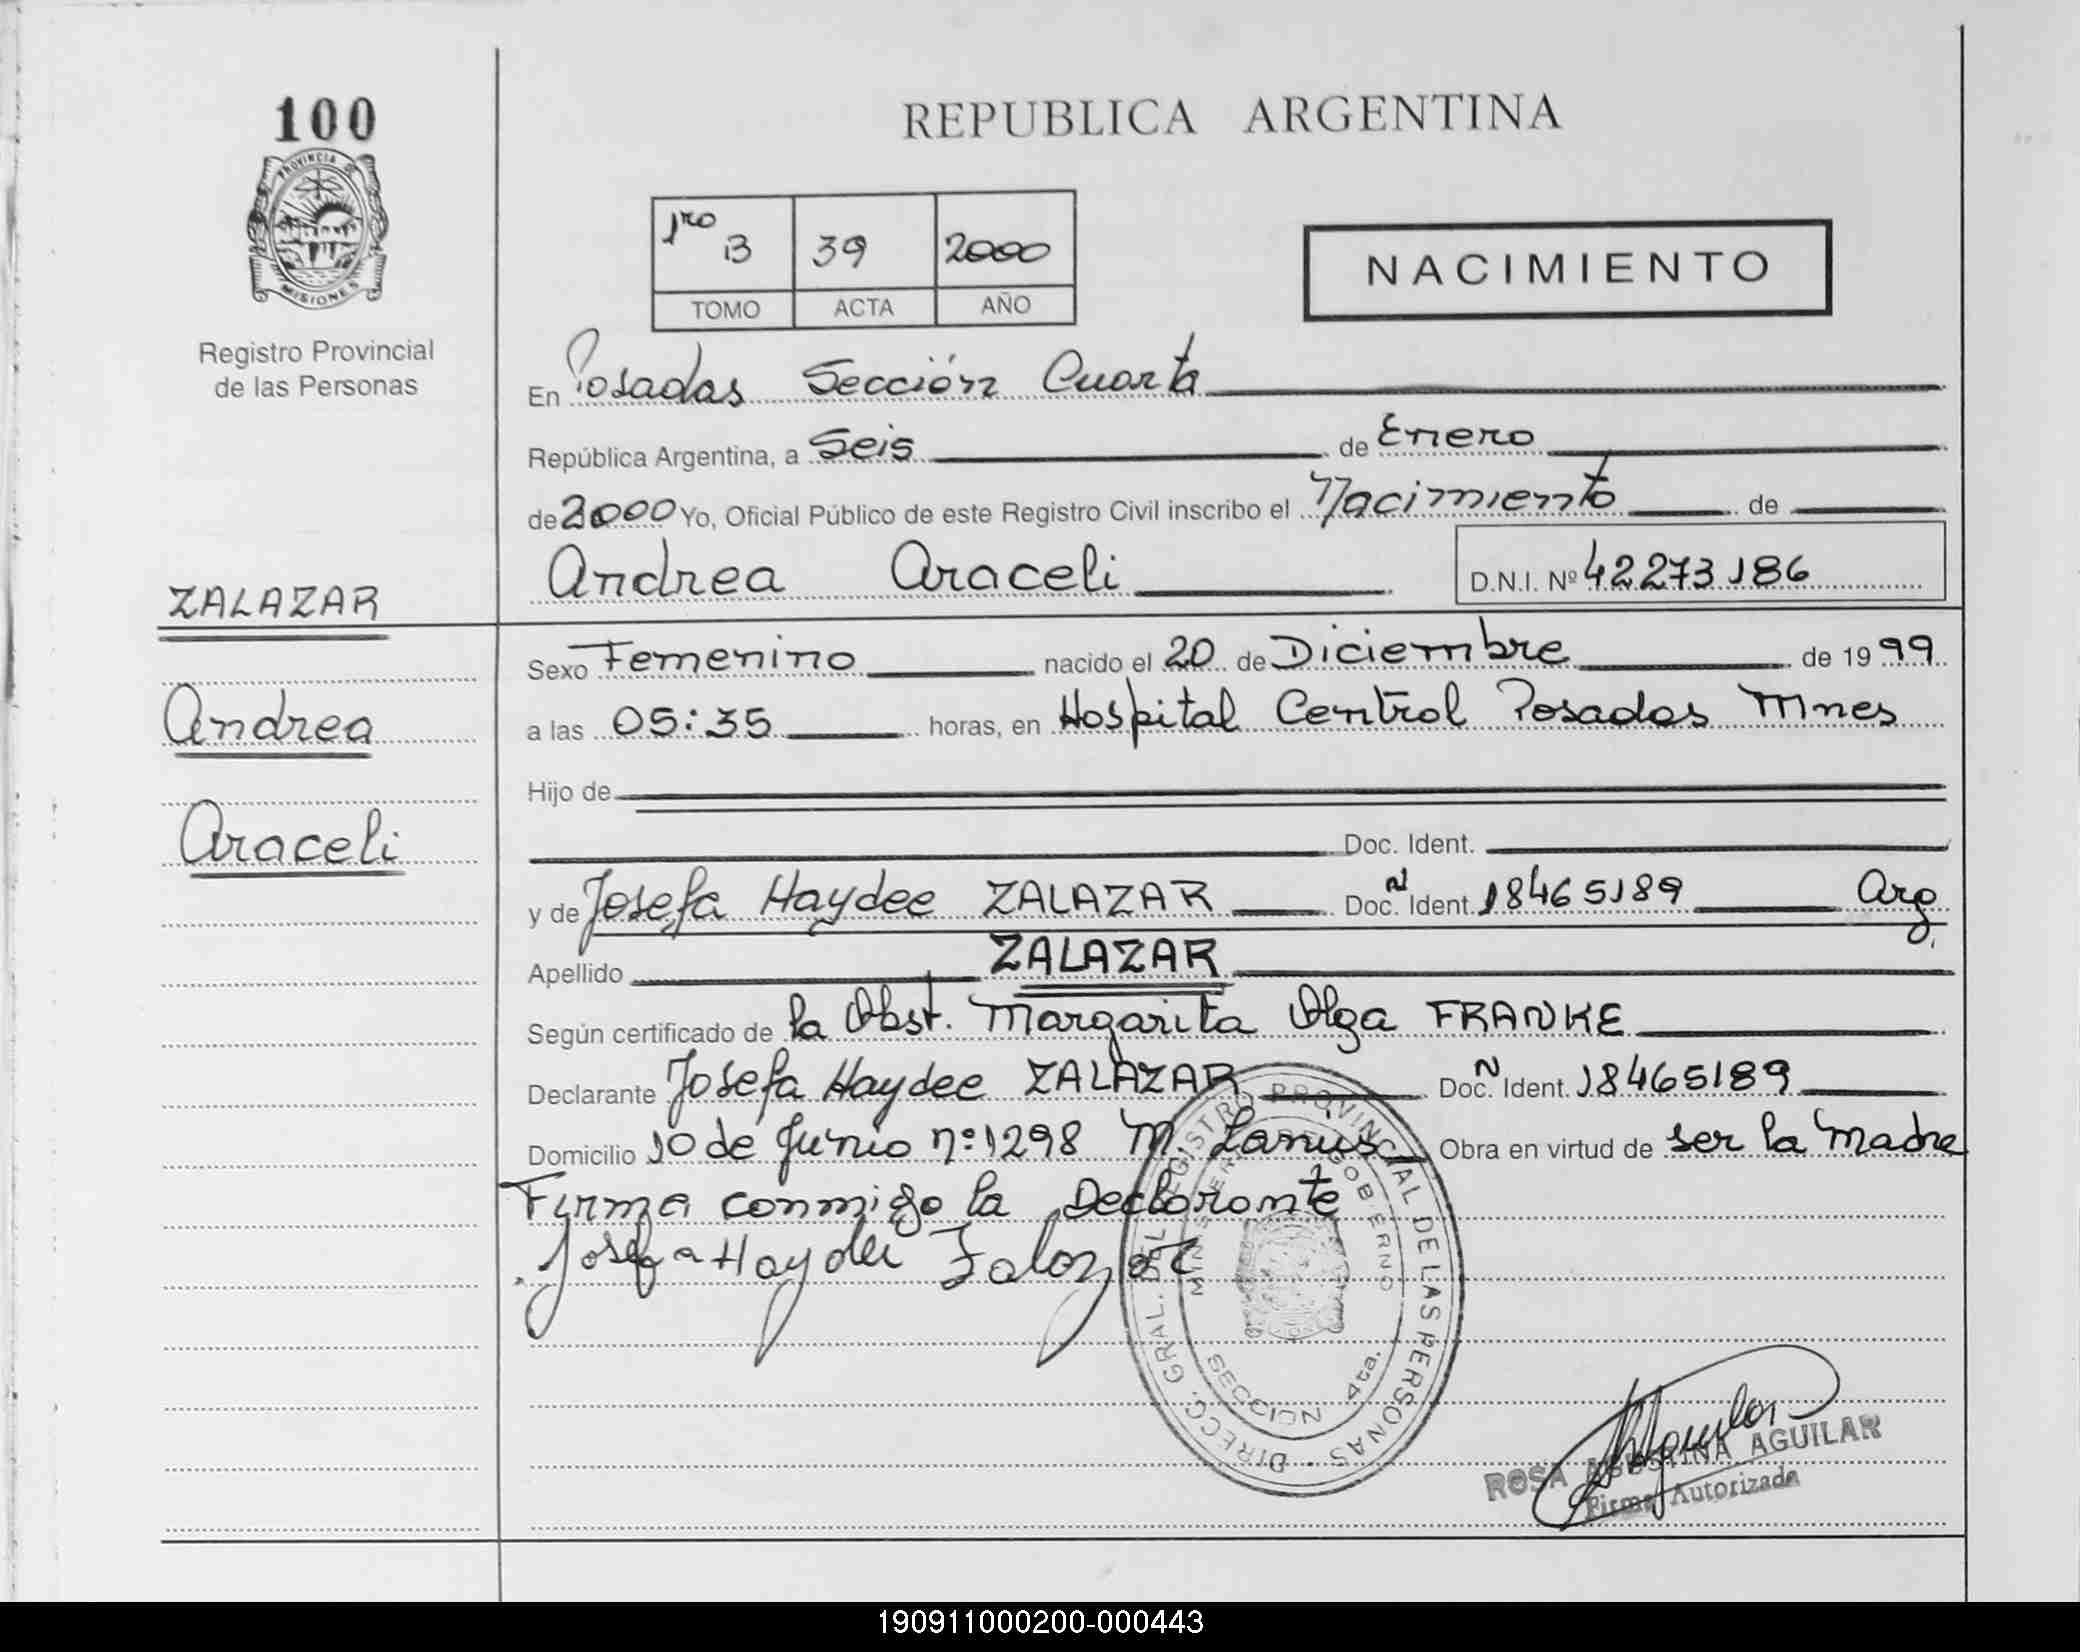 100
PROVINCIA DE
MISIONES
Registro Provincial
de las Personas
REPUBLICA ARGENTINA
1ro B 39 2000
TOMO ACTA AÑO
NACIMIENTO
En Posadas Sección Cuarta
República Argentina, a Seis de Enero
de 2000 Yo, Oficial Público de este Registro Civil inscribo el Nacimiento de
Andrea Araceli D.N.I. Nº 42273186
ZALAZAR
Andrea
Araceli
Sexo Femenino nacido el 20 de Diciembre de 1999
a las 05:35 horas, en Hospital Central Posadas Mnes
Hijo de
Doc. Ident.
y de Josefa Haydee ZALAZAR Doc. N Ident. 18465189 Arg.
Apellido ZALAZAR
Según certificado de la Obst. Margarita Olga FRANKE
Declarante Josefa Haydee ZALAZAR Doc. N Ident. 18465189
Domicilio 10 de Junio nº 1298 M. Lanús Obra en virtud de ser la Madre
Firma conmigo la Declarante
Josefa Haydee Zalazar
DIRECC. GRAL. DEL REGISTRO PROVINCIAL DE LAS PERSONAS
MINISTERIO DE GOBIERNO
SECCION 4ta.
ROSA AGUSTINA AGUILAR
Firma Autorizada
190911000200-000443